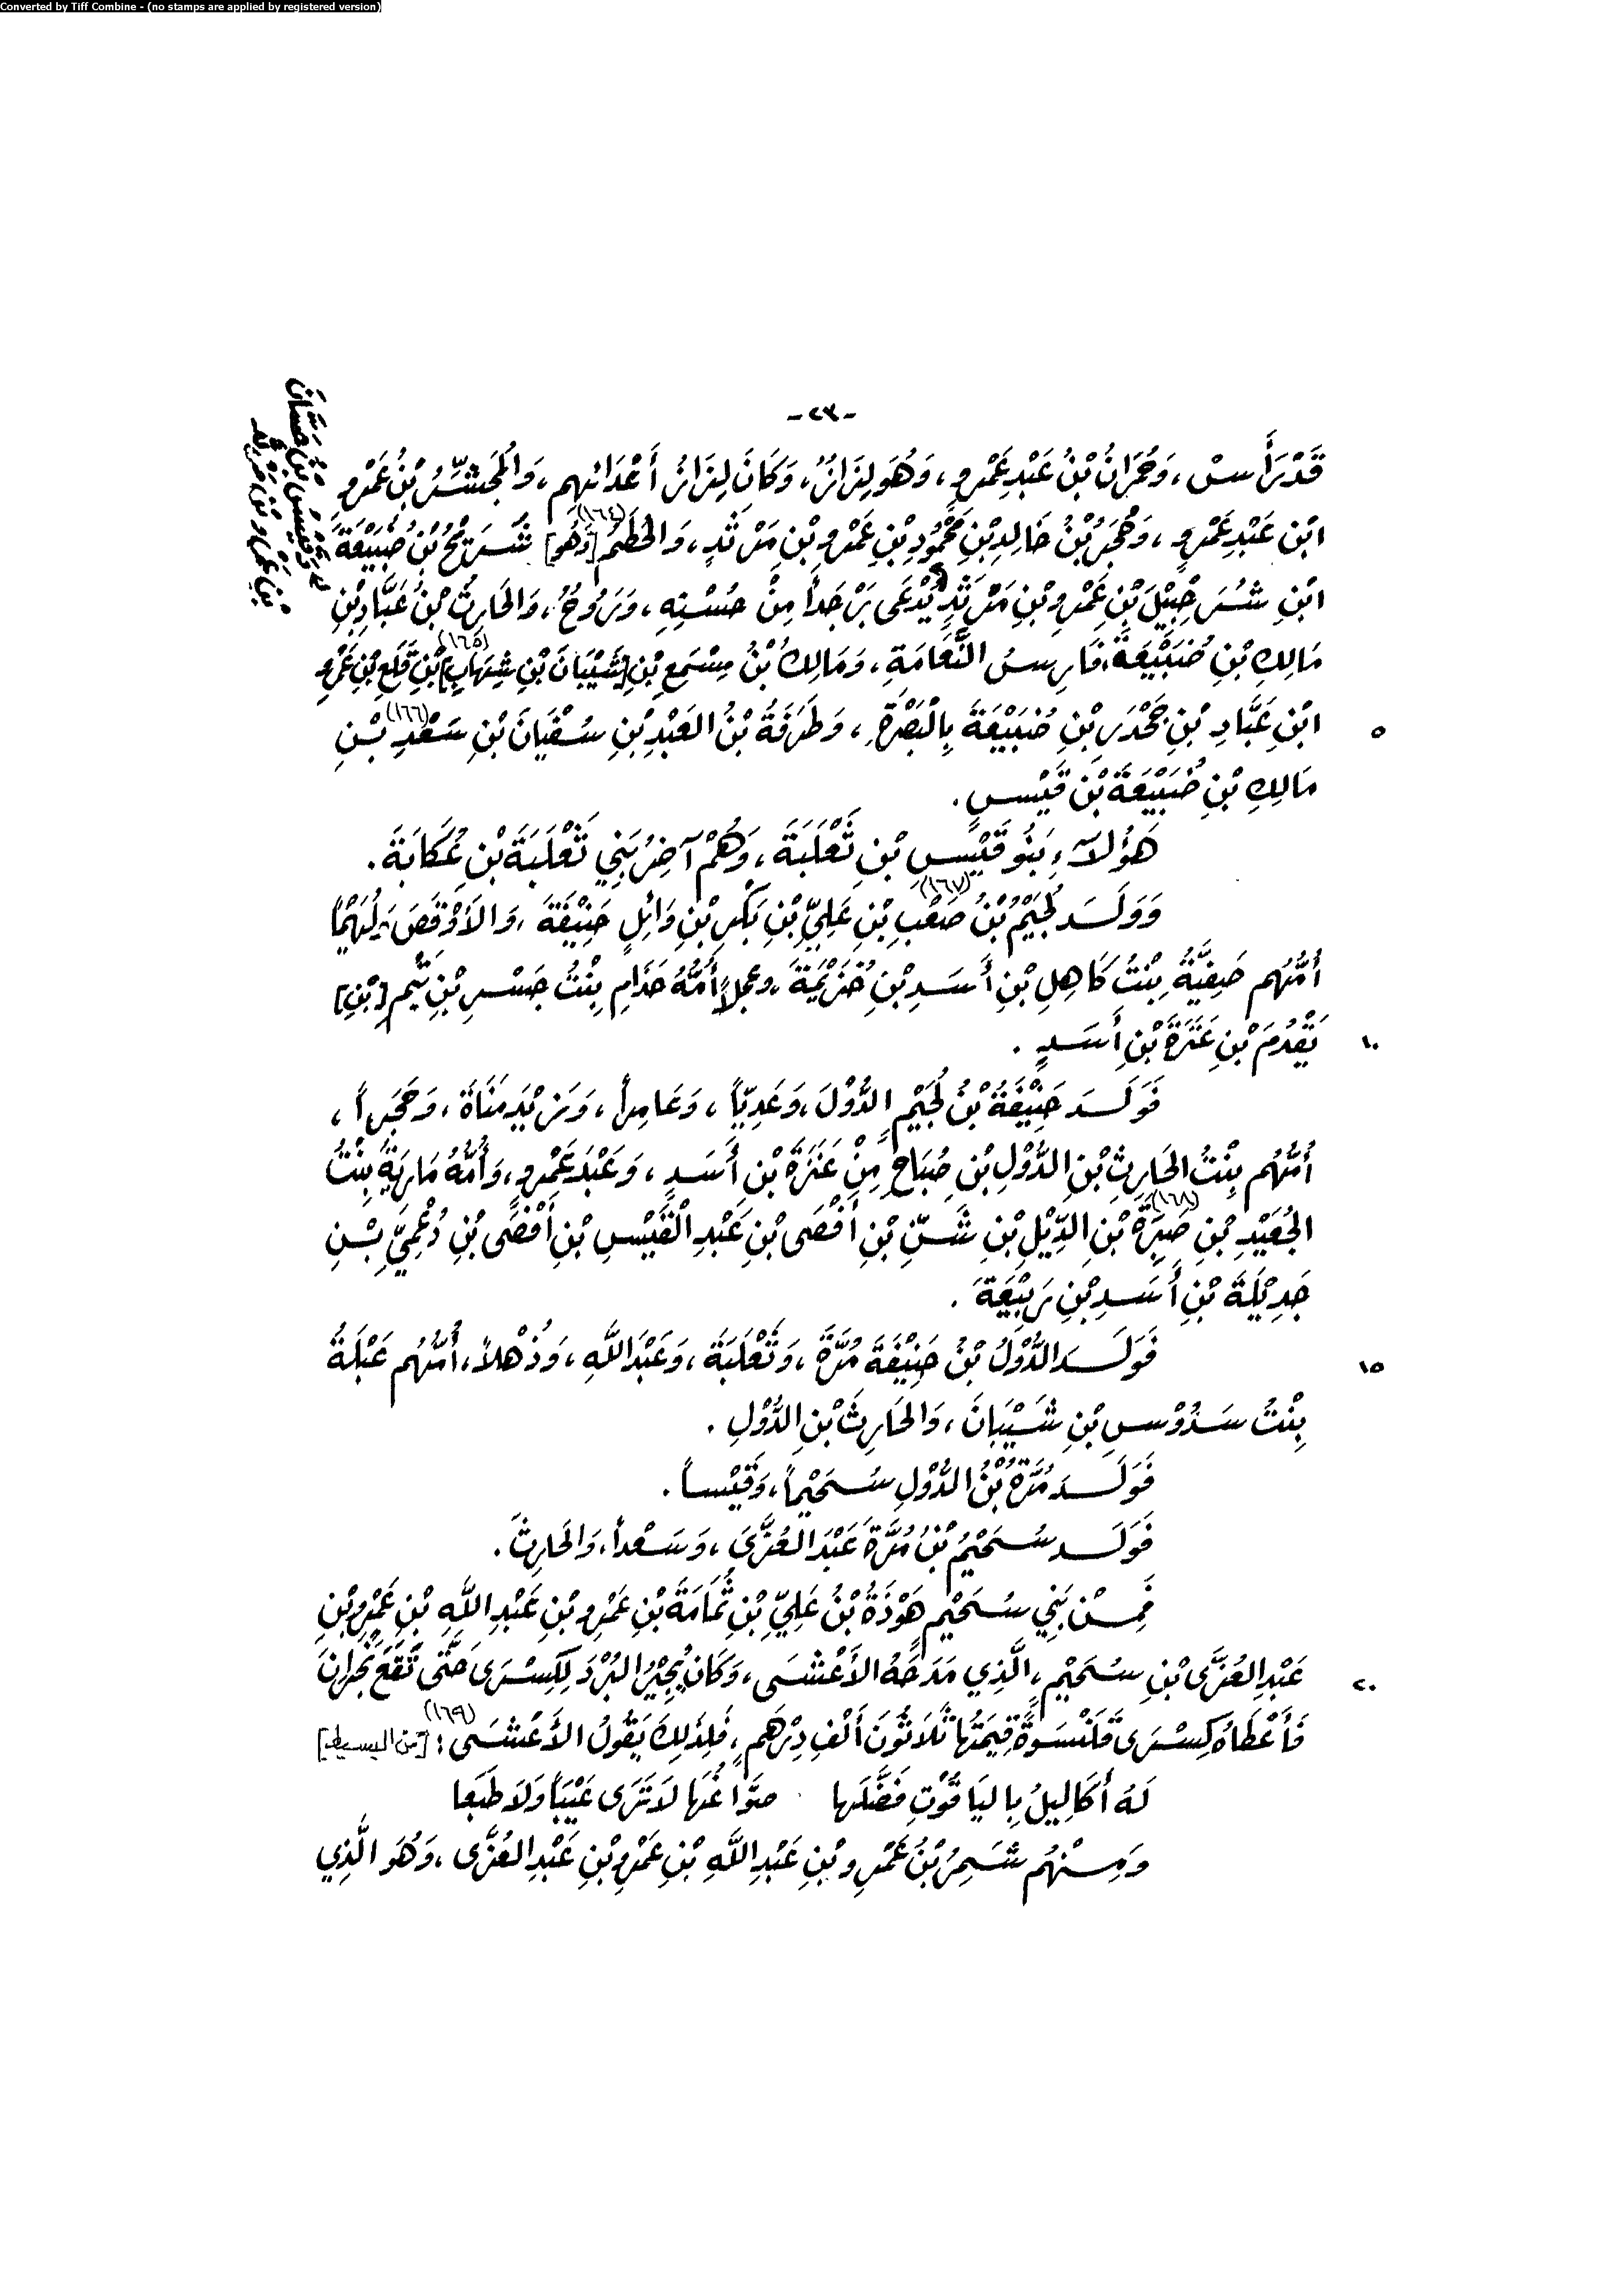 Converted by Tiff Combine - (no stamps are applied by registered version)
-٢٣-
قَدْرَأَسَ، وَحُمْرَانُ بْنُ عَبْدِ عَمْرٍو، وَهُوَ لِزَازٌ، وَكَانَ لِزَازُ أَعْدَائِهِم، وَالمُجَشَّرُ بْنُ عَمْرِو
ابْنِ عَبْدِ عَمْرٍو، وَحُجْرُ بْنُ خَالِدِ بْنِ مَحْمُودِ بْنِ عَمْرِو بْنِ مَرْثَدٍ، وَالحُطَمُ (١٦٤) [وَهُوَ] شُرَيْحُ بْنُ ضُبَيْعَةَ
ابْنِ شُرَحْبِيْلَ بْنِ عَمْرِو بْنِ مَرْثَدٍ يُدْعَى بَرْجَداً مِنْ حُسْنِهِ، وَرَوْحُ، وَالحَارِثُ بْنُ عَبَّادِ بْنِ
مَالِكِ بْنِ ضُبَيْعَةَ، فَارِسُ النَّعَامَةِ، وَمَالِكُ بْنُ مِسْمَعِ بْنِ [شَيْبَانَ بْنِ شِهَابِ] (١٦٥) بْنِ قَلَعِ بْنِ عَمْرِو
ابْنِ عَبَّادِ بْنِ جَحْدَرِ بْنِ ضُبَيْعَةَ بِالْبَصْرَةِ، وَطَرَفَةُ بْنُ العَبْدِ بْنِ سُفْيَانَ بْنِ سَعْدِ (١٦٦) بْنِ
٥
مَالِكِ بْنِ ضُبَيْعَةَ بْنِ قَيْسٍ.
هَؤُلآءِ بَنُو قَيْسِ بْنِ ثَعْلَبَةَ، وَهُمْ آخِرُ بَنِي ثَعْلَبَةَ بْنِ عُكَابَةَ.
وَوَلَدَ لُجَيْمُ بْنُ صَعْبِ (١٦٧) بْنِ عَلِيِّ بْنِ بَكْرِ بْنِ وَائِلٍ حَنِيْفَةَ، وَالأَوْقَصَ، وَلُهَيْماً
أُمُّهُم صَفِيَّةُ بِنْتُ كَاهِلِ بْنِ أَسَدِ بْنِ خُزَيْمَةَ، وَعِجْلاً أُمُّهُ حَذَامِ بِنْتُ جَسْرِ بْنِ تَيْمِ [بْنِ]
يَقْدُمَ بْنِ عَنَزَةَ بْنِ أَسَدٍ.
١٠
فَوَلَدَ حَنِيْفَةُ بْنُ لُجَيْمٍ الدُّوْلَ، وَعَدِيّاً، وَعَامِراً، وَزَيْدَ مَنَاةَ، وَحَجَراً،
أُمُّهُم بِنْتُ الحَارِثِ بْنِ الدُّوْلِ بْنِ صُبَاحٍ مِنْ عَنَزَةَ بْنِ أَسَدٍ، وَعَبْدَ عَمْرٍو، وَأُمُّهُ مَارِيَةُ بِنْتُ
الجُعَيْدِ بْنِ صَبِرَةَ (١٦٨) بْنِ الدِّيْلِ بْنِ شَنِّ بْنِ أَفْصَى بْنِ عَبْدِ الْقَيْسِ بْنِ أَفْصَى بْنِ دُعْمِيِّ بْنِ
جَدِيْلَةَ بْنِ أَسَدِ بْنِ رَبِيْعَةَ.
فَوَلَدَ الدُّوْلُ بْنُ حَنِيْفَةَ مُرَّةَ، وَثَعْلَبَةَ، وَعَبْدَ اللَّهِ، وَذُهْلاً، أُمُّهُم عَبْلَةُ
١٥
بِنْتُ سَدُوْسِ بْنِ شَيْبَانَ، وَالحَارِثَ بْنِ الدُّوْلِ.
فَوَلَدَ مُرَّةُ بْنُ الدُّوْلِ سُحَيْماً، وَقَيْساً.
فَوَلَدَ سُحَيْمُ بْنُ مُرَّةَ عَبْدَ العُزَّى، وَسَعْداً، وَالحَارِثَ.
فَمِنْ بَنِي سُحَيْمٍ هَوْذَةُ بْنُ عَلِيِّ بْنِ ثُمَامَةَ بْنِ عَمْرِو بْنِ عَبْدِ اللَّهِ بْنِ عَمْرِو بْنِ
عَبْدِ العُزَّى بْنِ سُحَيْمٍ، الَّذِي مَدَحَهُ الأَعْشَى، وَكَانَ يُجِيْزُ البُرْدَ لِكِسْرَى حَتَّى تَقَعَ نَجْرَانَ
٢٠
فَأَعْطَاهُ كِسْرَى قَلَنْسُوَةً قِيمَتُهَا ثَلاَثُونَ أَلْفَ دِرْهَمٍ، فَلِذَلِكَ يَقُولُ الأَعْشَى (١٦٩): [من البسيط]
لَهُ أَكَالِيلُ بِاليَاقُوْتِ فَضَّلَهَا صَوَّاغُهَا لاَ تَرَى عَيْبَاً وَلاَ طَبَعَا
وَمِنْهُم شَمِرُ بْنُ عَمْرِو بْنِ عَبْدِ اللَّهِ بْنِ عَمْرِو بْنِ عَبْدِ العُزَّى، وَهُوَ الَّذِي